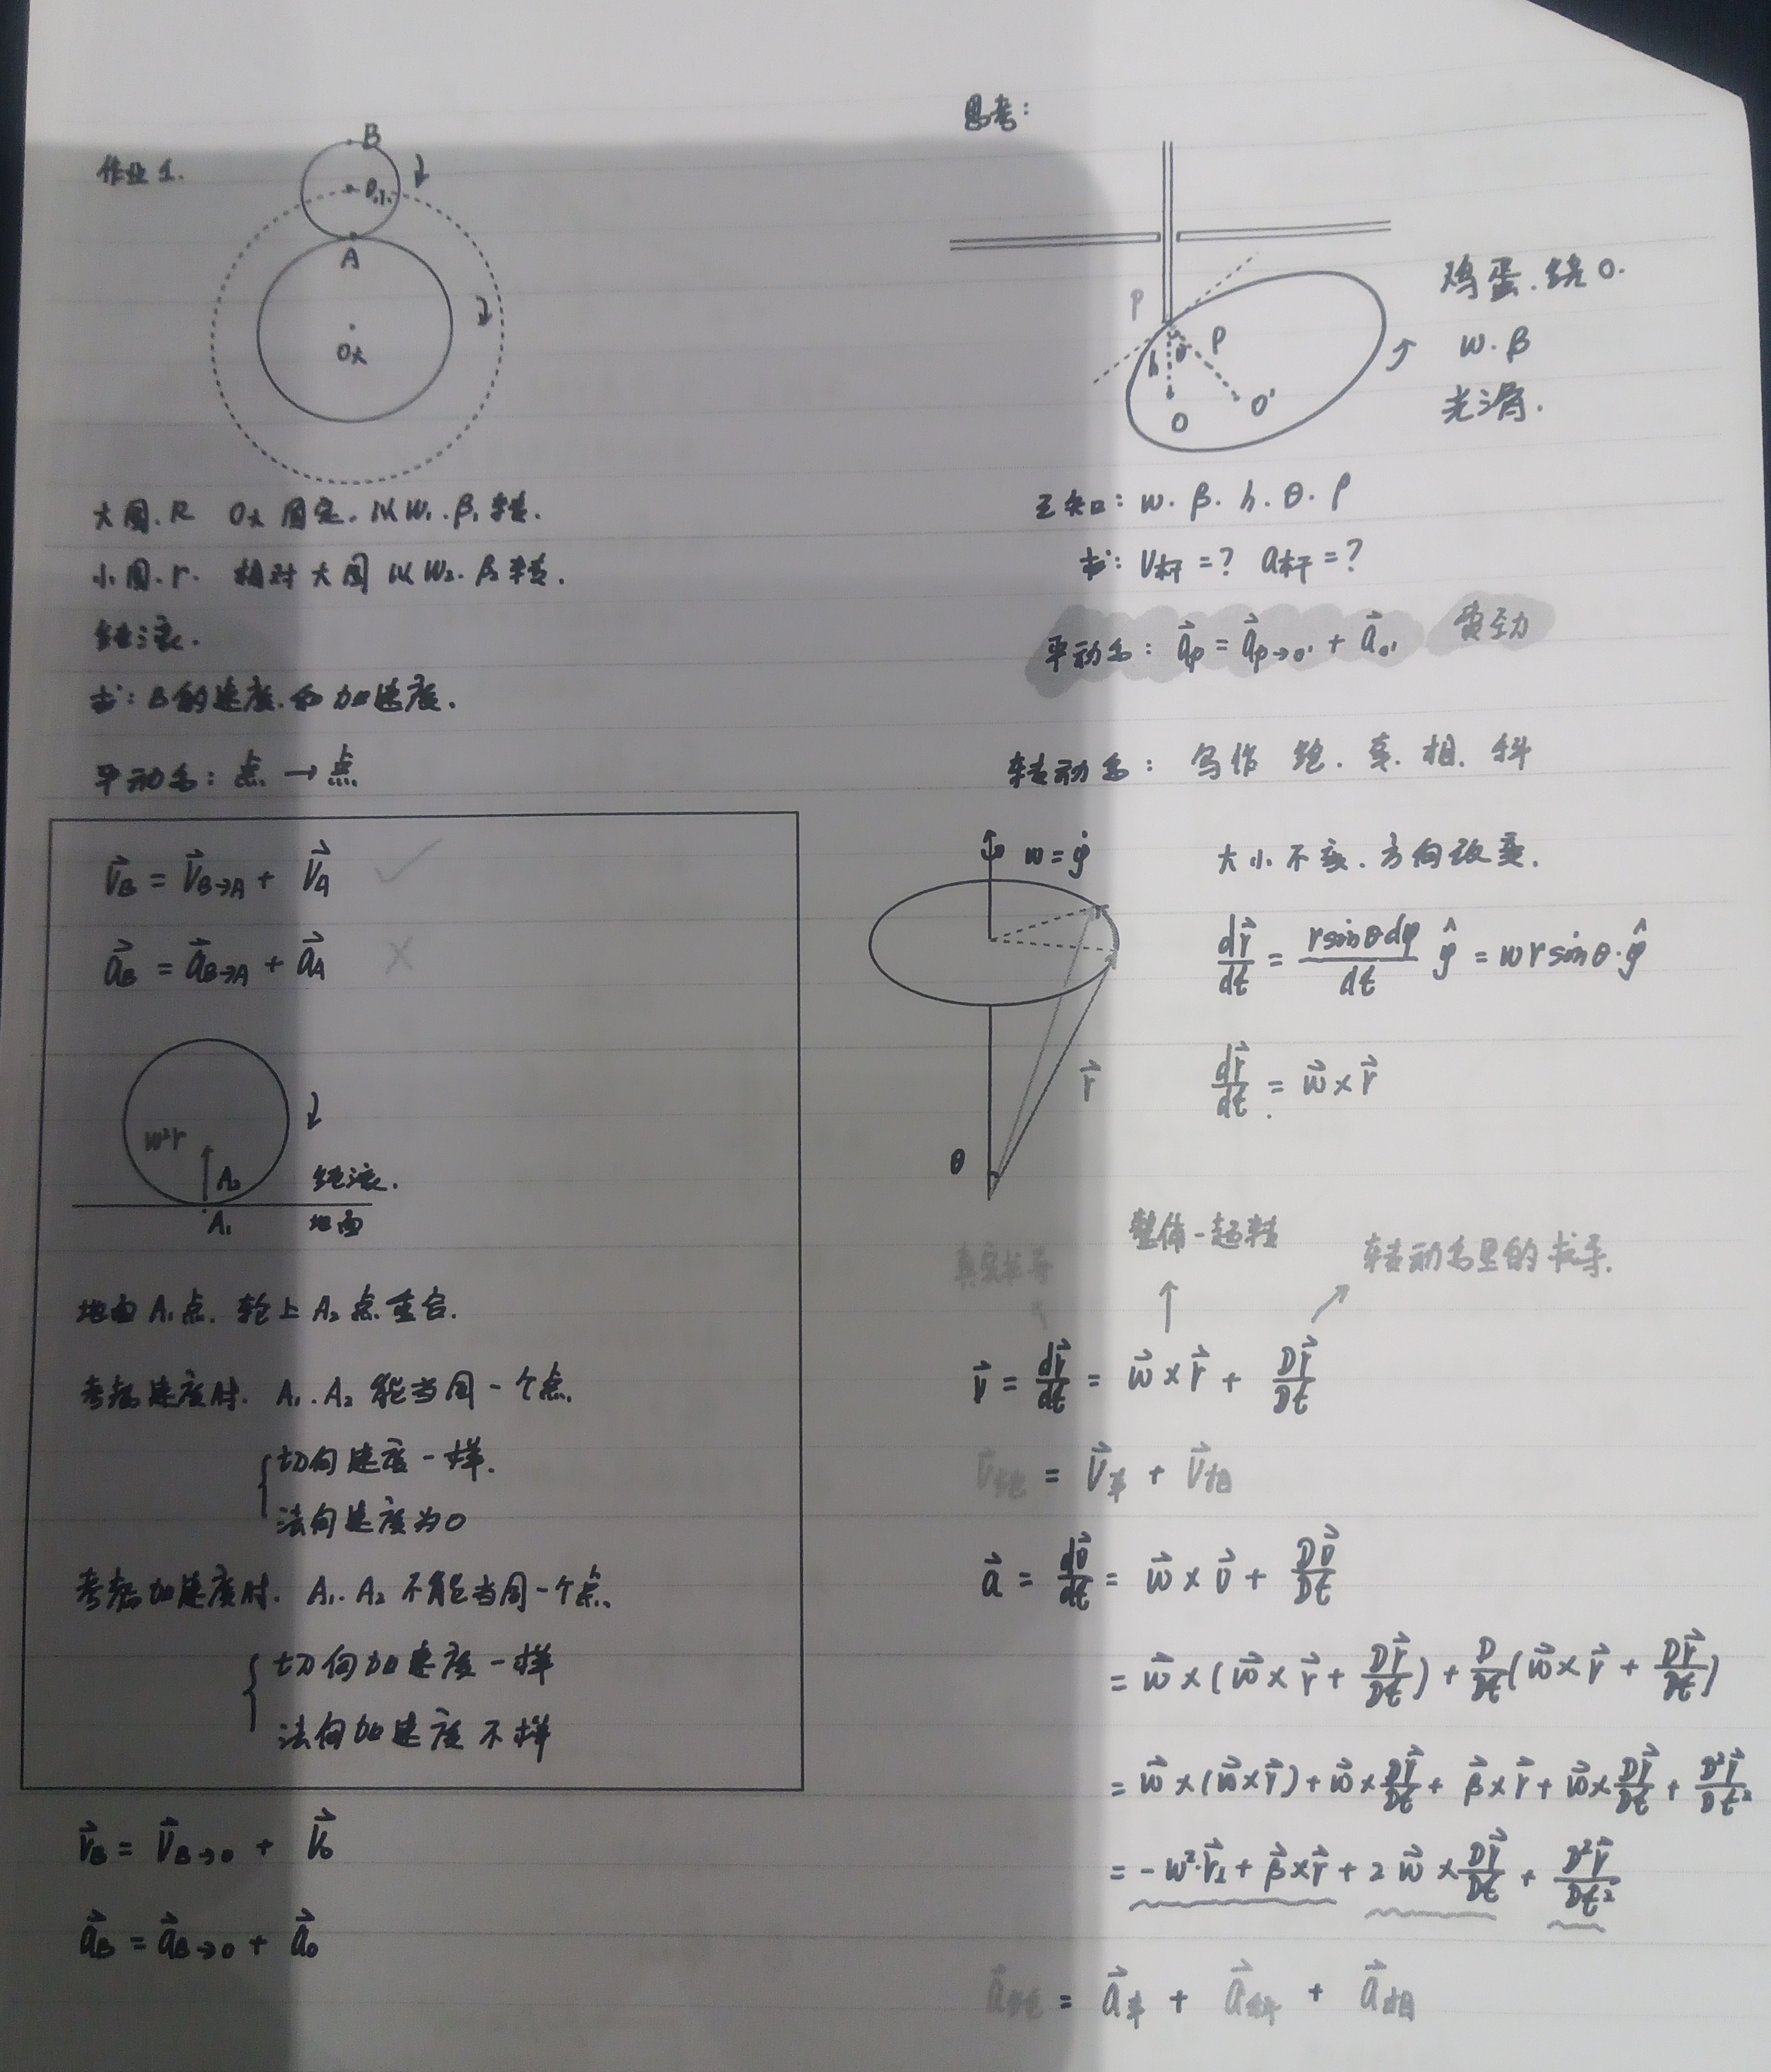 作业1.
B
O小
A
O大
大圆.R O大固定.以ω₁.β₁转.
小圆.r. 相对大圆以ω₂.β₂转.
纯滚.
求:B的速度.和加速度.
平动系:点→点
v⃗_B = v⃗_{B→A} + v⃗_A ✓
a⃗_B = a⃗_{B→A} + a⃗_A ×
ω²r
A₂ 纯滚.
A₁ 地面
地面A₁点.轮上A₂点重合.
考虑速度时. A₁.A₂能当同一个点.
切向速度一样.
法向速度为0
考虑加速度时. A₁.A₂不能当同一个点.
切向加速度一样
法向加速度不样
v⃗_B = v⃗_{B→O} + v⃗_O
a⃗_B = a⃗_{B→O} + a⃗_O
思考:
鸡蛋.绕O.
P
ω.β
h θ ρ
光滑.
O O'
已知:ω.β.h.θ.ρ
求:v杆=? a杆=?
平动系:a⃗_P = a⃗_{P→O'} + a⃗_{O'} 费劲
转动系:写作 绝.牵.相.科
ω=φ̇
大小不变.方向改变.
dr⃗/dt = rsinθdφ/dt φ̂ = ωrsinθ·φ̂
r⃗
dr⃗/dt = ω⃗×r⃗
θ
真实求导 整体一起转 转动系里的求导.
v⃗ = dr⃗/dt = ω⃗×r⃗ + Dr⃗/Dt
v⃗绝 = v⃗牵 + v⃗相
a⃗ = dv⃗/dt = ω⃗×v⃗ + Dv⃗/Dt
= ω⃗×(ω⃗×r⃗ + Dr⃗/Dt) + D/Dt(ω⃗×r⃗ + Dr⃗/Dt)
= ω⃗×(ω⃗×r⃗) + ω⃗×Dr⃗/Dt + β⃗×r⃗ + ω⃗×Dr⃗/Dt + D²r⃗/Dt²
= -ω²·r⃗⊥ + β⃗×r⃗ + 2ω⃗×Dr⃗/Dt + D²r⃗/Dt²
a⃗绝 = a⃗牵 + a⃗科 + a⃗相